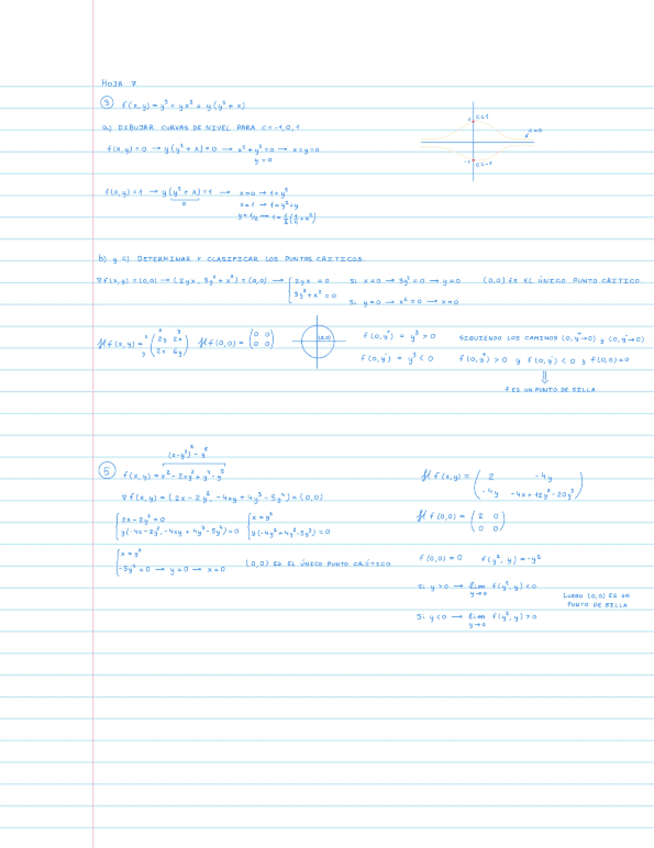 HOJA 7
③ f(x,y) = y³ + yx² = y(y² + x)
a) DIBUJAR CURVAS DE NIVEL PARA C = -1, 0, 1
f(x,y) = 0 → y(y² + x) = 0 → x² + y² = 0 → x = y = 0
y = 0
1 C=1
C=0
-1 C=-1
f(x,y) = 1 → y(y² + x) = 1 → x=0 → 1 = y³
x=1 → 1 = y³ + y
y = 1/2 → 1 = 1/2 (1/4 + x²)
b) y c) DETERMINAR Y CLASIFICAR LOS PUNTOS CRÍTICOS.
∇f(x,y) = (0,0) → (2yx, 3y² + x²) = (0,0) → { 2yx = 0 Si x=0 → 3y² = 0 → y=0 (0,0) ES EL ÚNICO PUNTO CRÍTICO
3y² + x² = 0 Si y=0 → x² = 0 → x=0
x y
Hf(x,y) = x y (2y 2x
2x 6y) Hf(0,0) = (0 0
0 0) (0,0)
f(0,y⁺) = y³ > 0 SIGUIENDO LOS CAMINOS (0,y⁺→0) y (0,y⁻→0)
f(0,y⁻) = y³ < 0 f(0,y⁺) > 0 y f(0,y⁻) < 0 y f(0,0) = 0
⇓
f ES UN PUNTO DE SILLA
(x-y²)² - y⁵
⑤ f(x,y) = x² - 2xy² + y⁴ - y⁵
∇f(x,y) = (2x - 2y², -4xy + 4y³ - 5y⁴) = (0,0)
{ 2x - 2y² = 0 { x = y²
y(-4x - 2y², -4xy + 4y³ - 5y⁴) = 0 y(-4y² + 4y² - 5y³) = 0
{ x = y²
-5y⁴ = 0 → y = 0 → x = 0 (0,0) ES EL ÚNICO PUNTO CRÍTICO
Hf(x,y) = (2 -4y
-4y -4x + 12y² - 20y³)
Hf(0,0) = (2 0
0 0)
f(0,0) = 0 f(y², y) = -y⁵
Si y > 0 → lim f(y², y) < 0
y→0
Si y < 0 → lim f(y², y) > 0
y→0
LUEGO (0,0) ES UN
PUNTO DE SILLA